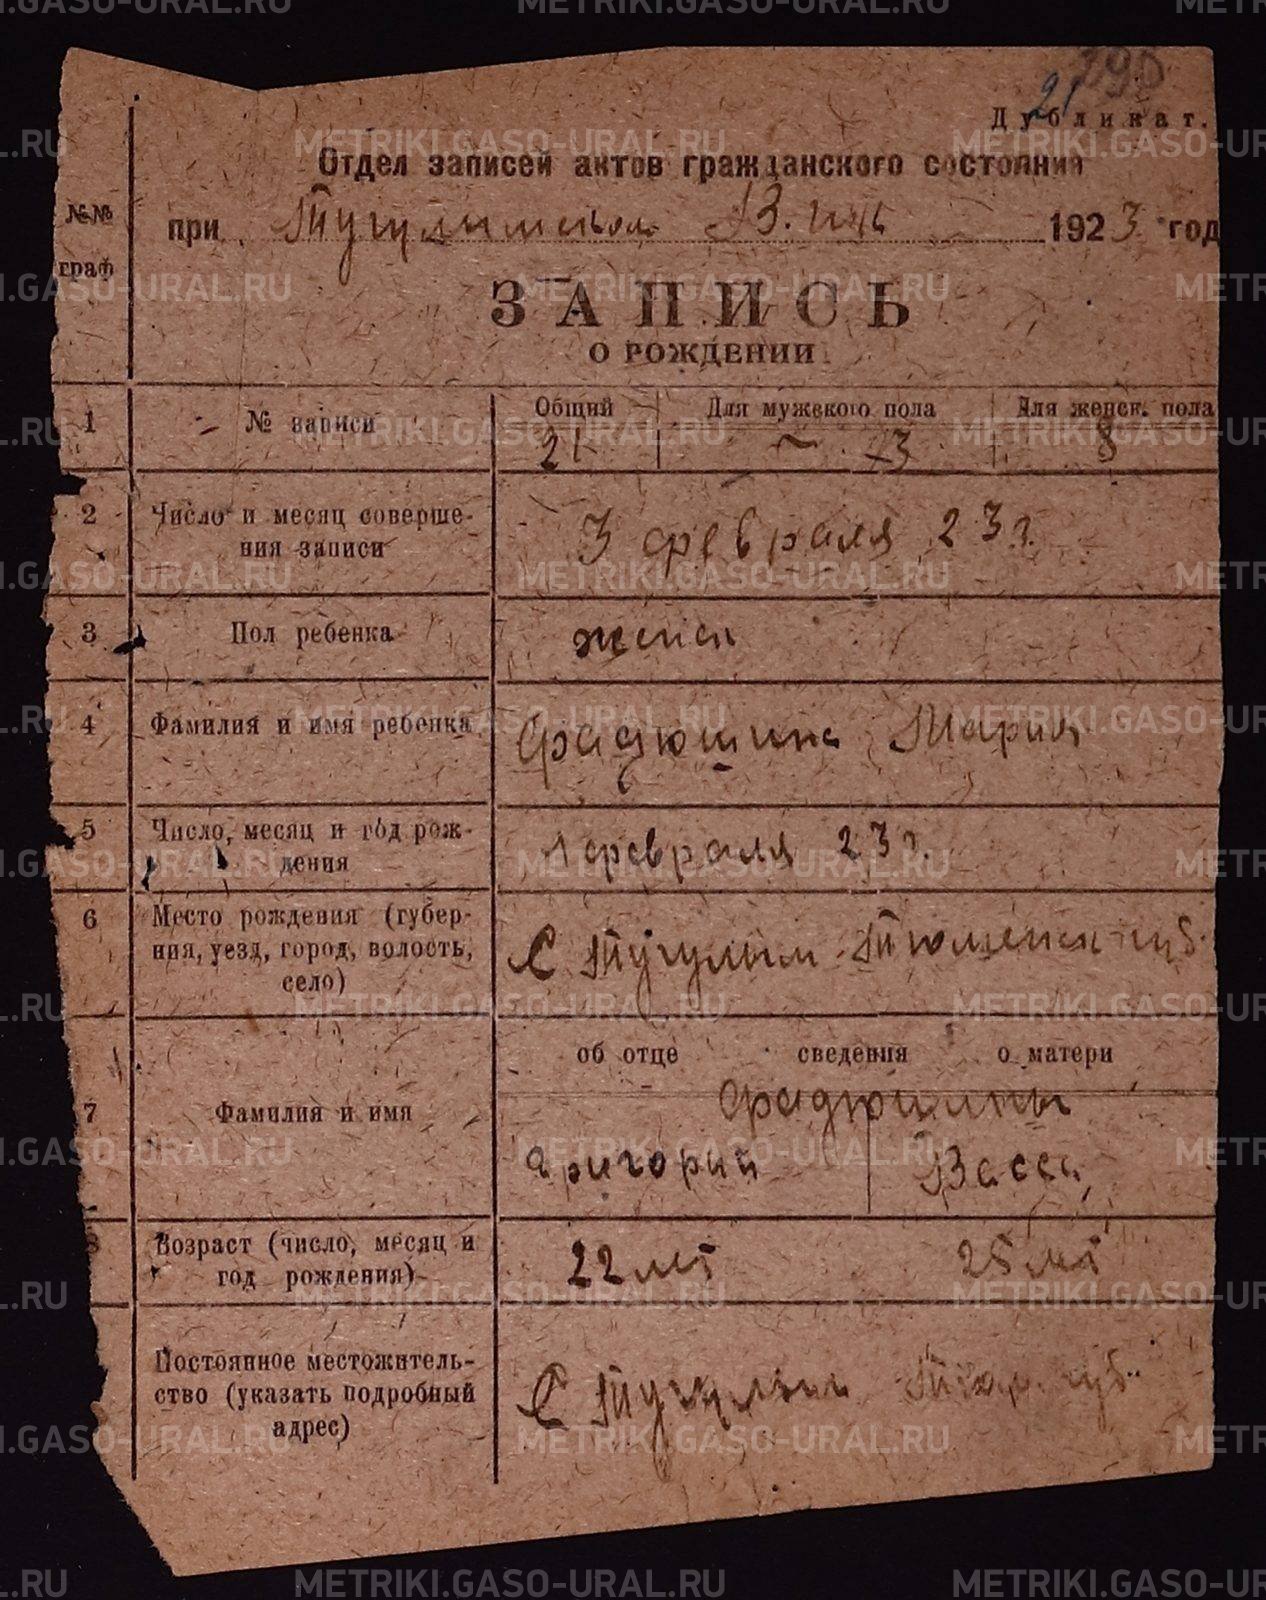 290
21
Дубликат.
Отдел записей актов гражданского состояния
при Тугулымском В. 1923 год
№№ граф
ЗАПИСЬ
О РОЖДЕНИИ
1 № записи Общий Для мужского пола Для женск. пола
21 ~ 13 8
2 Число и месяц соверше-
ния записи
3 февраля 23 г.
3 Пол ребенка женск
4 Фамилия и имя ребенка Фадюшина Мария
5 Число, месяц и год рож-
дения
1 февраля 23 г.
6 Место рождения (губер-
ния, уезд, город, волость,
село)
С Тугулым Тюменск губ.
об отце сведения о матери
7 Фамилия и имя Фадюшины
Григорий Васса
8 Возраст (число, месяц и
год рождения)
22 лет 25 лет
Постоянное местожитель-
ство (указать подробный
адрес)
С Тугулым Тюм. губ.
METRIKI.GASO-URAL.RU